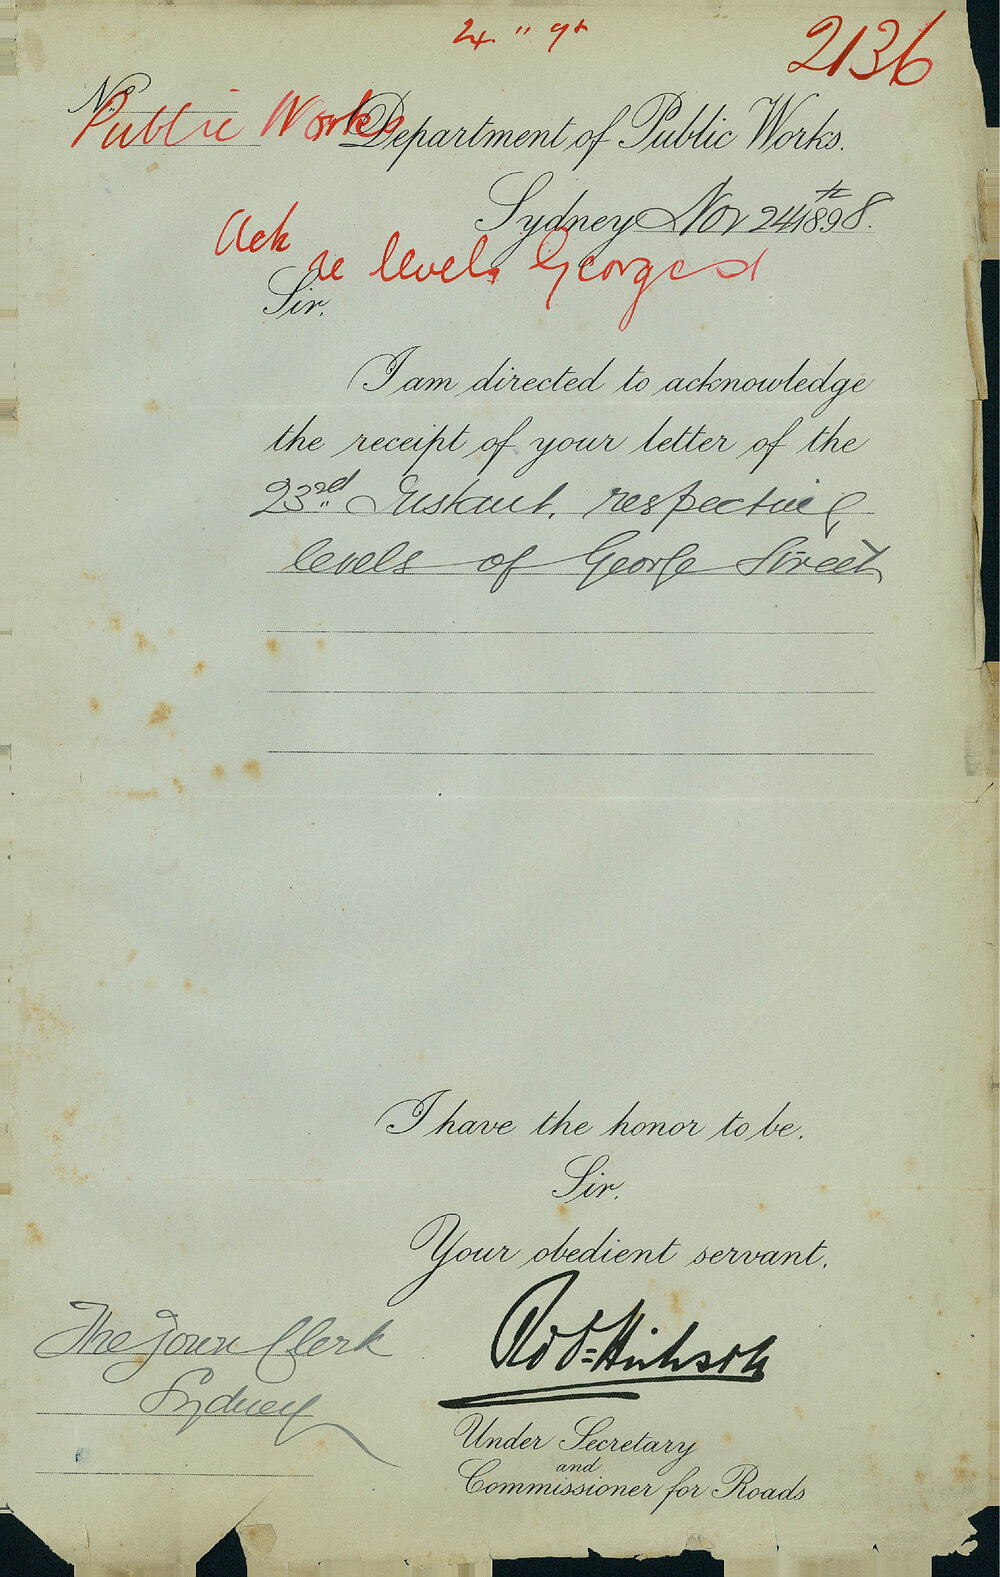 24 " 98
2136
No
Public Works
Department of Public Works.
Sydney Nov 24th 1898.
Ack
re levels George st
Sir,
I am directed to acknowledge
the receipt of your letter of the
23rd Instant, respecting
levels of George Street
I have the honor to be,
Sir,
Your obedient servant,
The Town Clerk
Sydney
Under Secretary
and
Commissioner for Roads